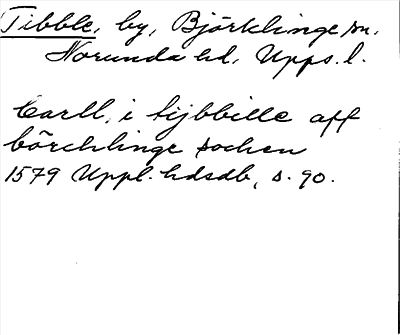 Tibble, by, Björklinge sn.
Norunda hd, Upps. l.
Carll, i tijbbille aff
börchlinge sochen
1579 Uppl. hdsdb, s. 90.